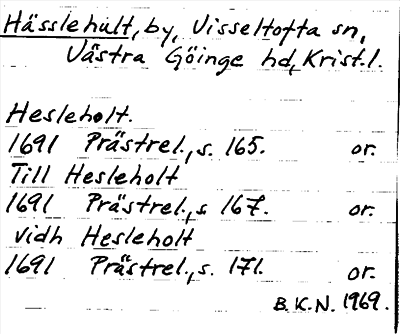 Hässlehult, by, Visseltofta sn,
Västra Göinge hd, Krist.l.
Hesleholt.
1691 Prästrel., s. 165. or.
Till Hesleholt
1691 Prästrel., s. 167. or.
vidh Hesleholt
1691 Prästrel., s. 171. or.
B.K.N. 1969.